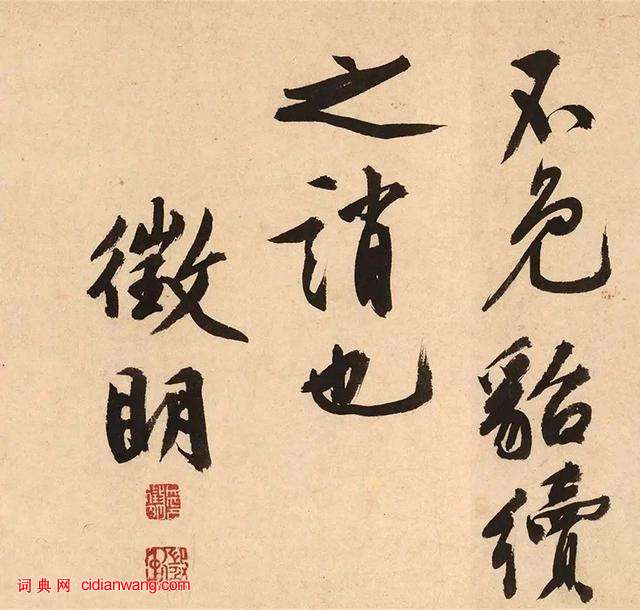 不免貂續
之誚也
徵明
词典网 cidianwang.com